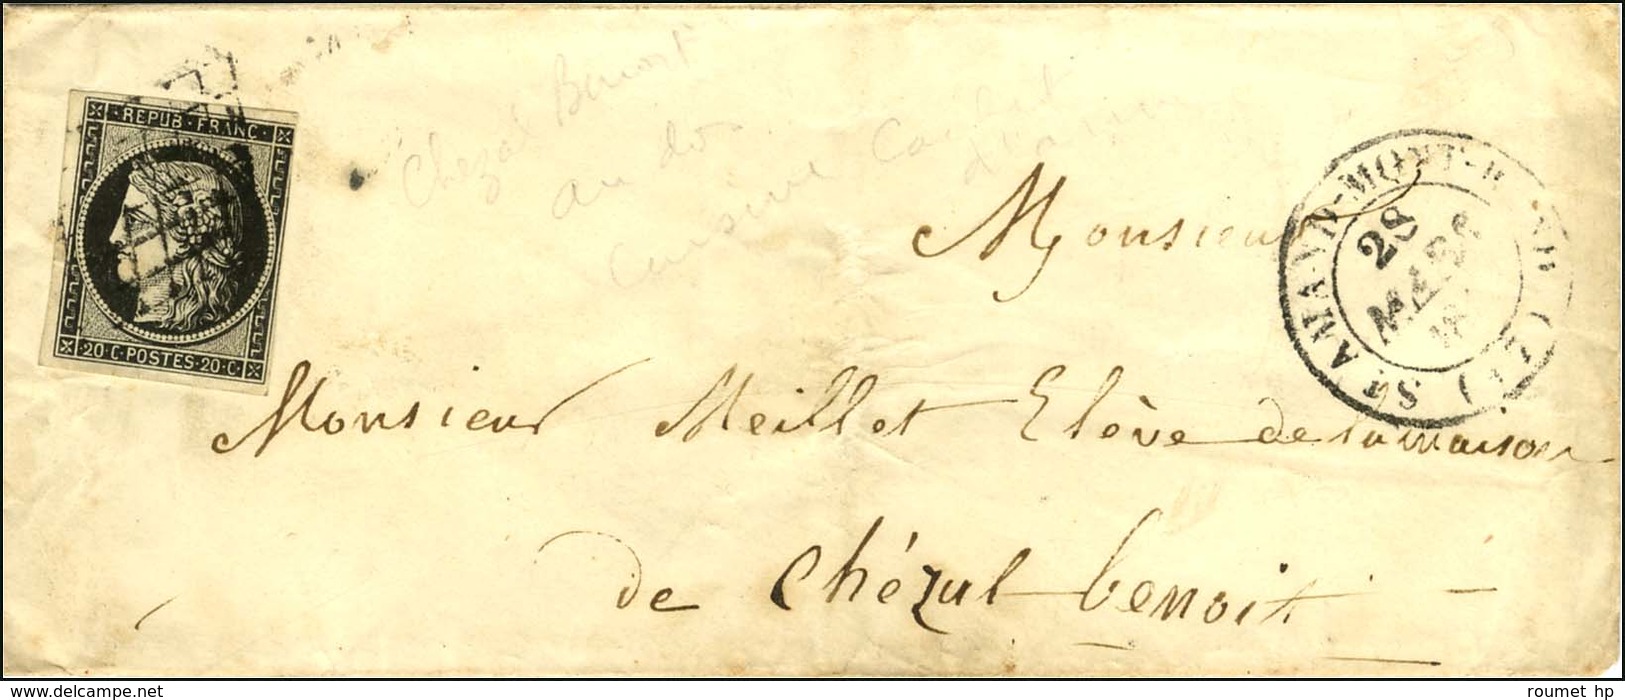 REPUB · FRANC
20 · C · POSTES · 20 · C ·
Chezal Benoist
au dos
cursive
Monsieur
ST AMAN-MONT-R ND (17)
28
MARS
Monsieur Meillet Elève de la maison
de Chézal benoit
www.delcampe.net
roumet hp